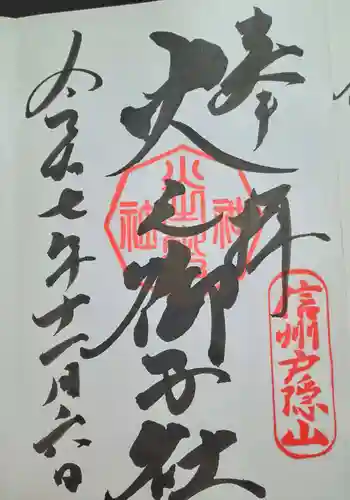 奉拝
信州戸隠山
火之御子社
令和七年十一月六日